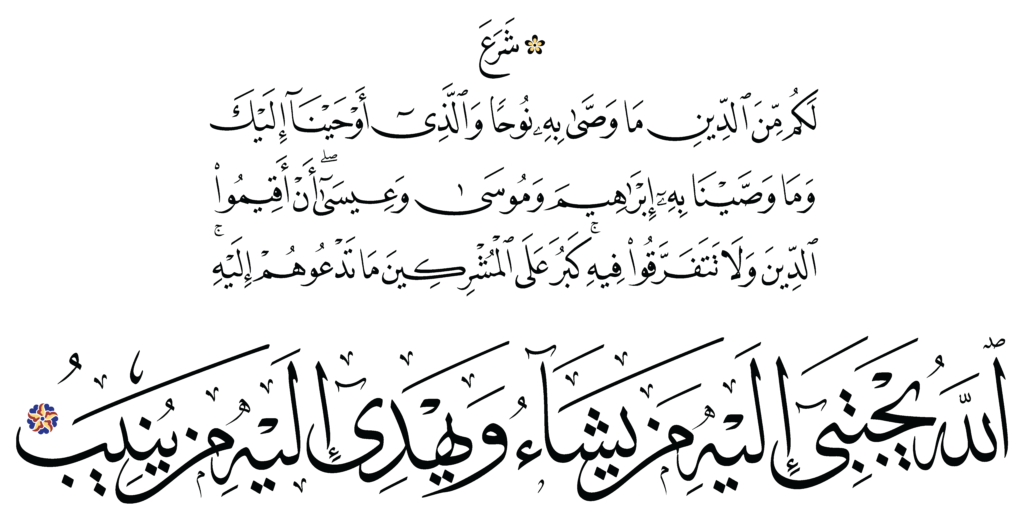 شَرَعَ
لَكُم مِّنَ ٱلدِّينِ مَا وَصَّىٰ بِهِۦ نُوحًا وَٱلَّذِىٓ أَوْحَيْنَآ إِلَيْكَ
وَمَا وَصَّيْنَا بِهِۦٓ إِبْرَٰهِيمَ وَمُوسَىٰ وَعِيسَىٰٓ ۖ أَنْ أَقِيمُوا۟
ٱلدِّينَ وَلَا تَتَفَرَّقُوا۟ فِيهِ ۚ كَبُرَ عَلَى ٱلْمُشْرِكِينَ مَا تَدْعُوهُمْ إِلَيْهِ ۚ
ٱللَّهُ يَجْتَبِىٓ إِلَيْهِ مَن يَشَآءُ وَيَهْدِىٓ إِلَيْهِ مَن يُنِيبُ